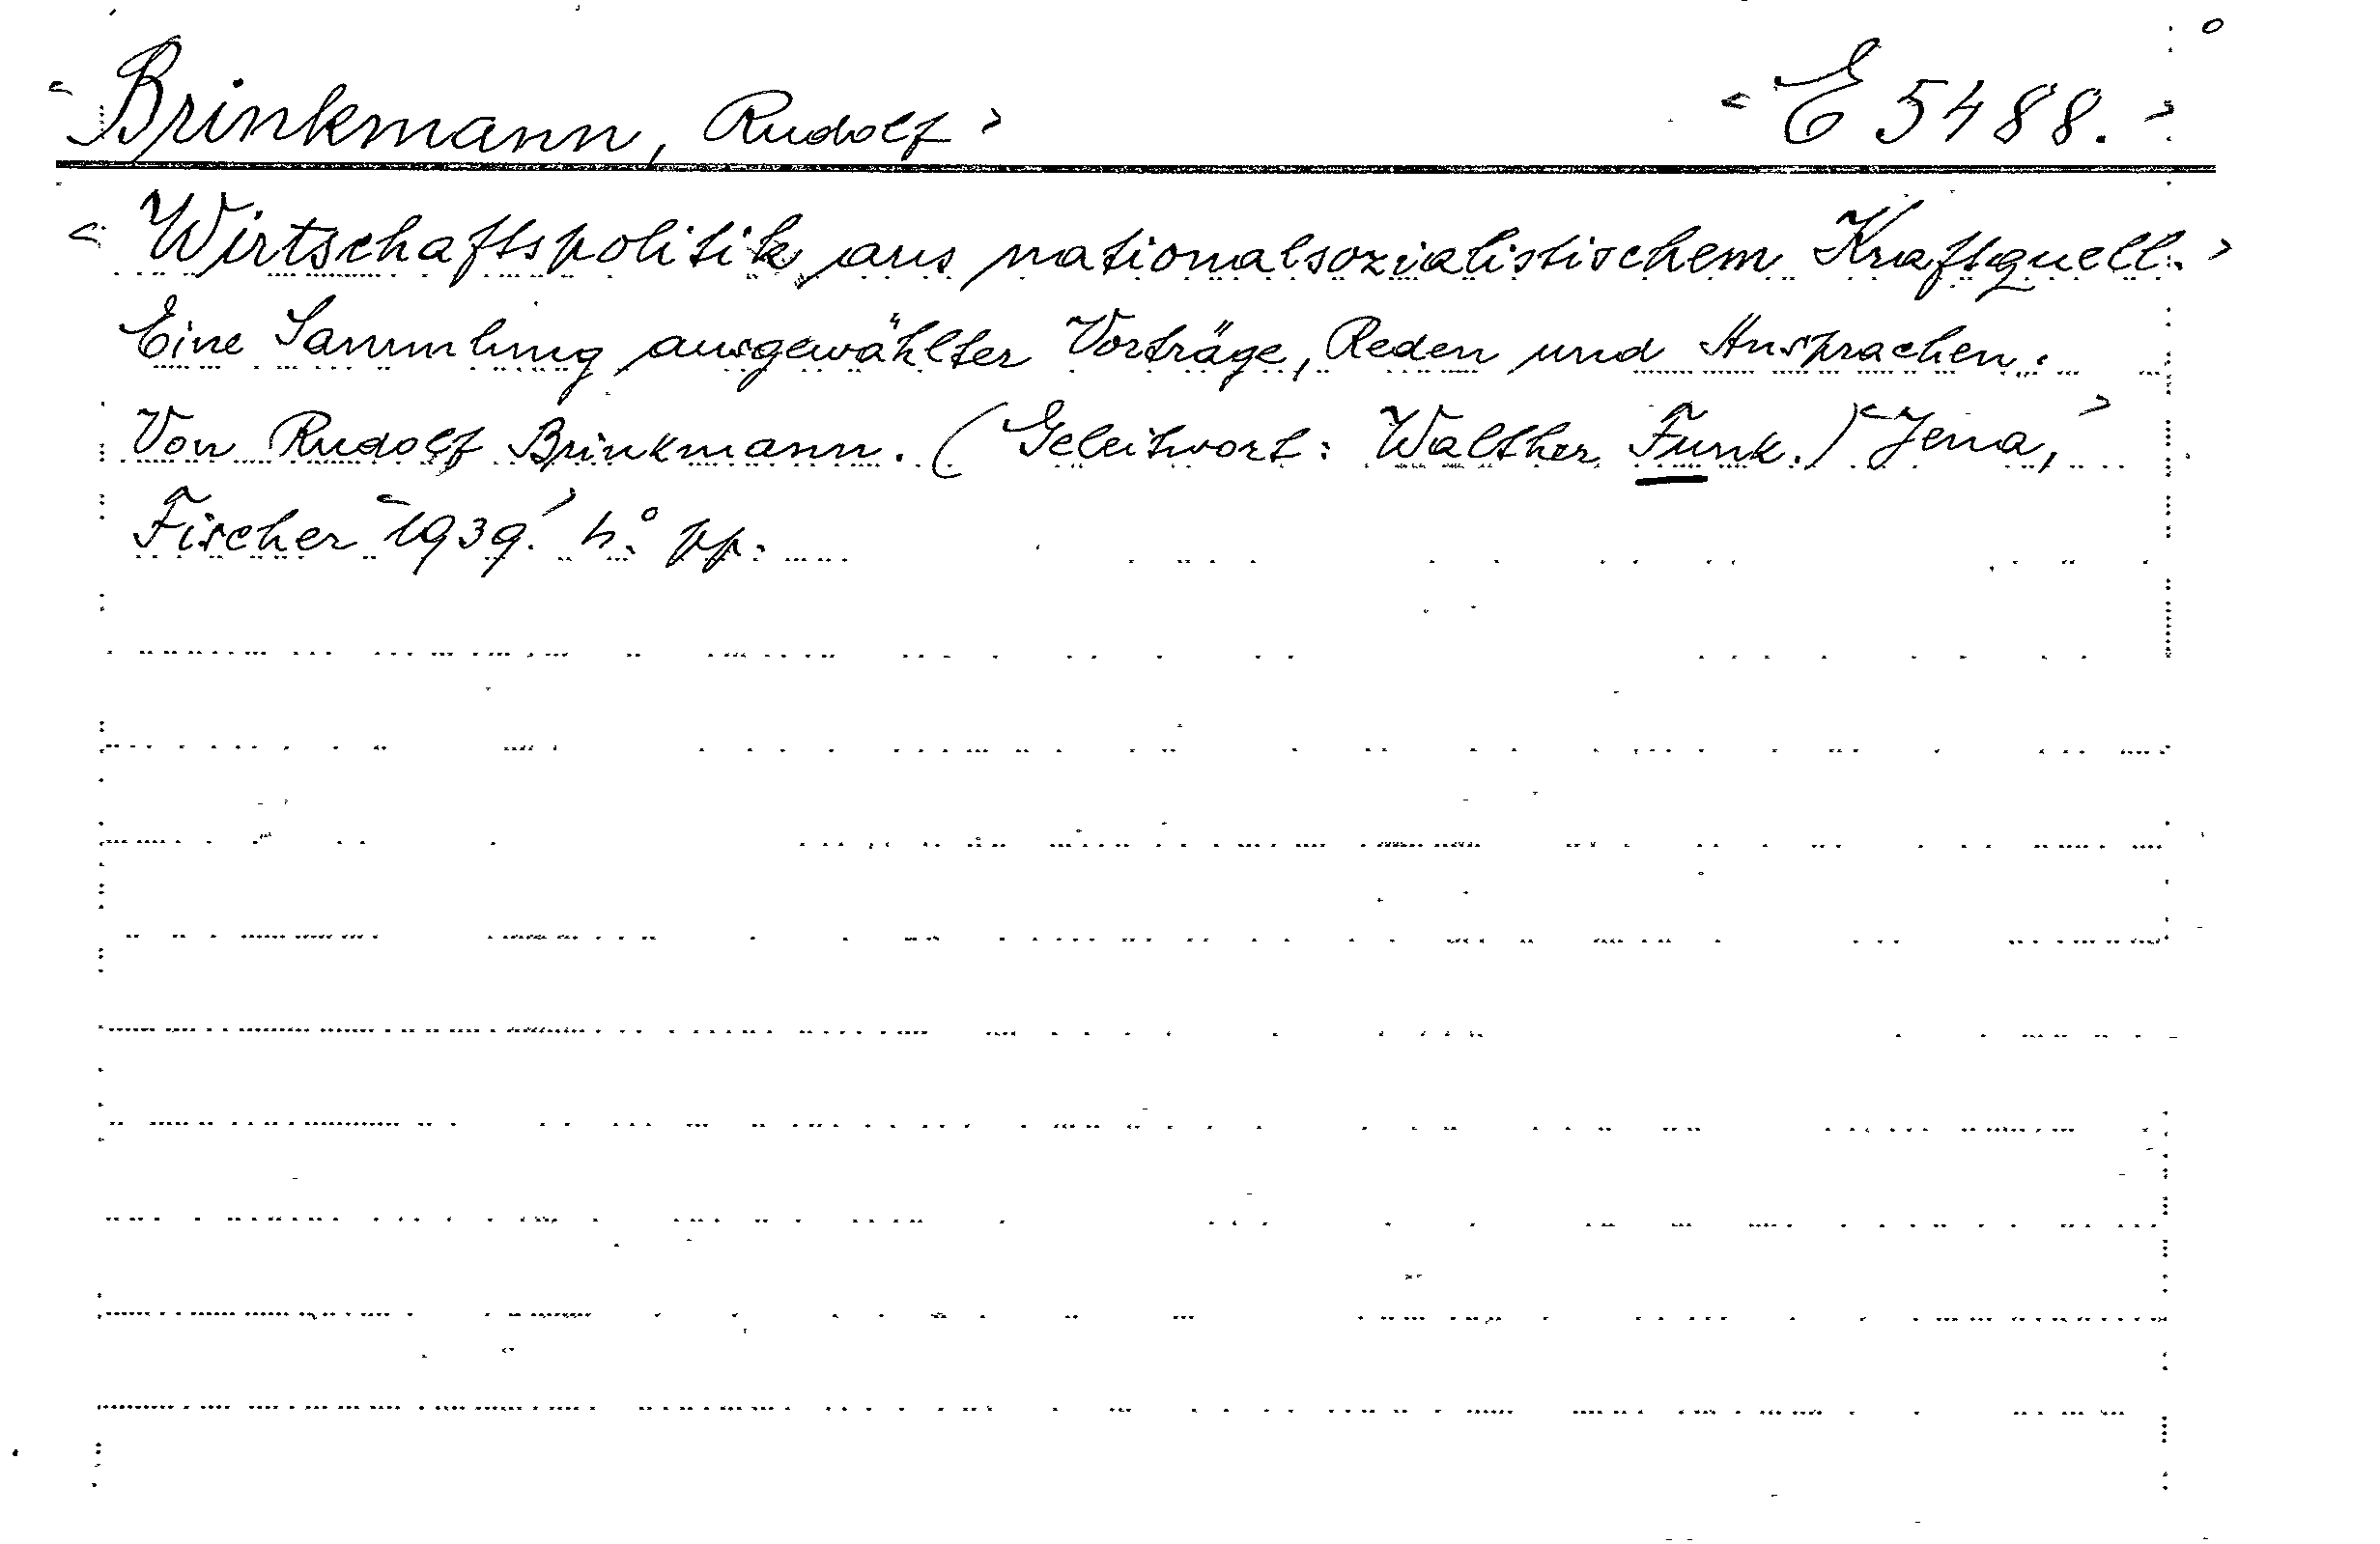 < Brinkmann, Rudolf > < E 5488. >
< Wirtschaftspolitik aus nationalsozialistischem Kraftquell. >
Eine Sammlung ausgewählter Vorträge, Reden und Ansprachen.
Von Rudolf Brinkmann. (Geleitwort: Walther Funk.) < Jena, >
Fischer < 1939. > 4° pp.